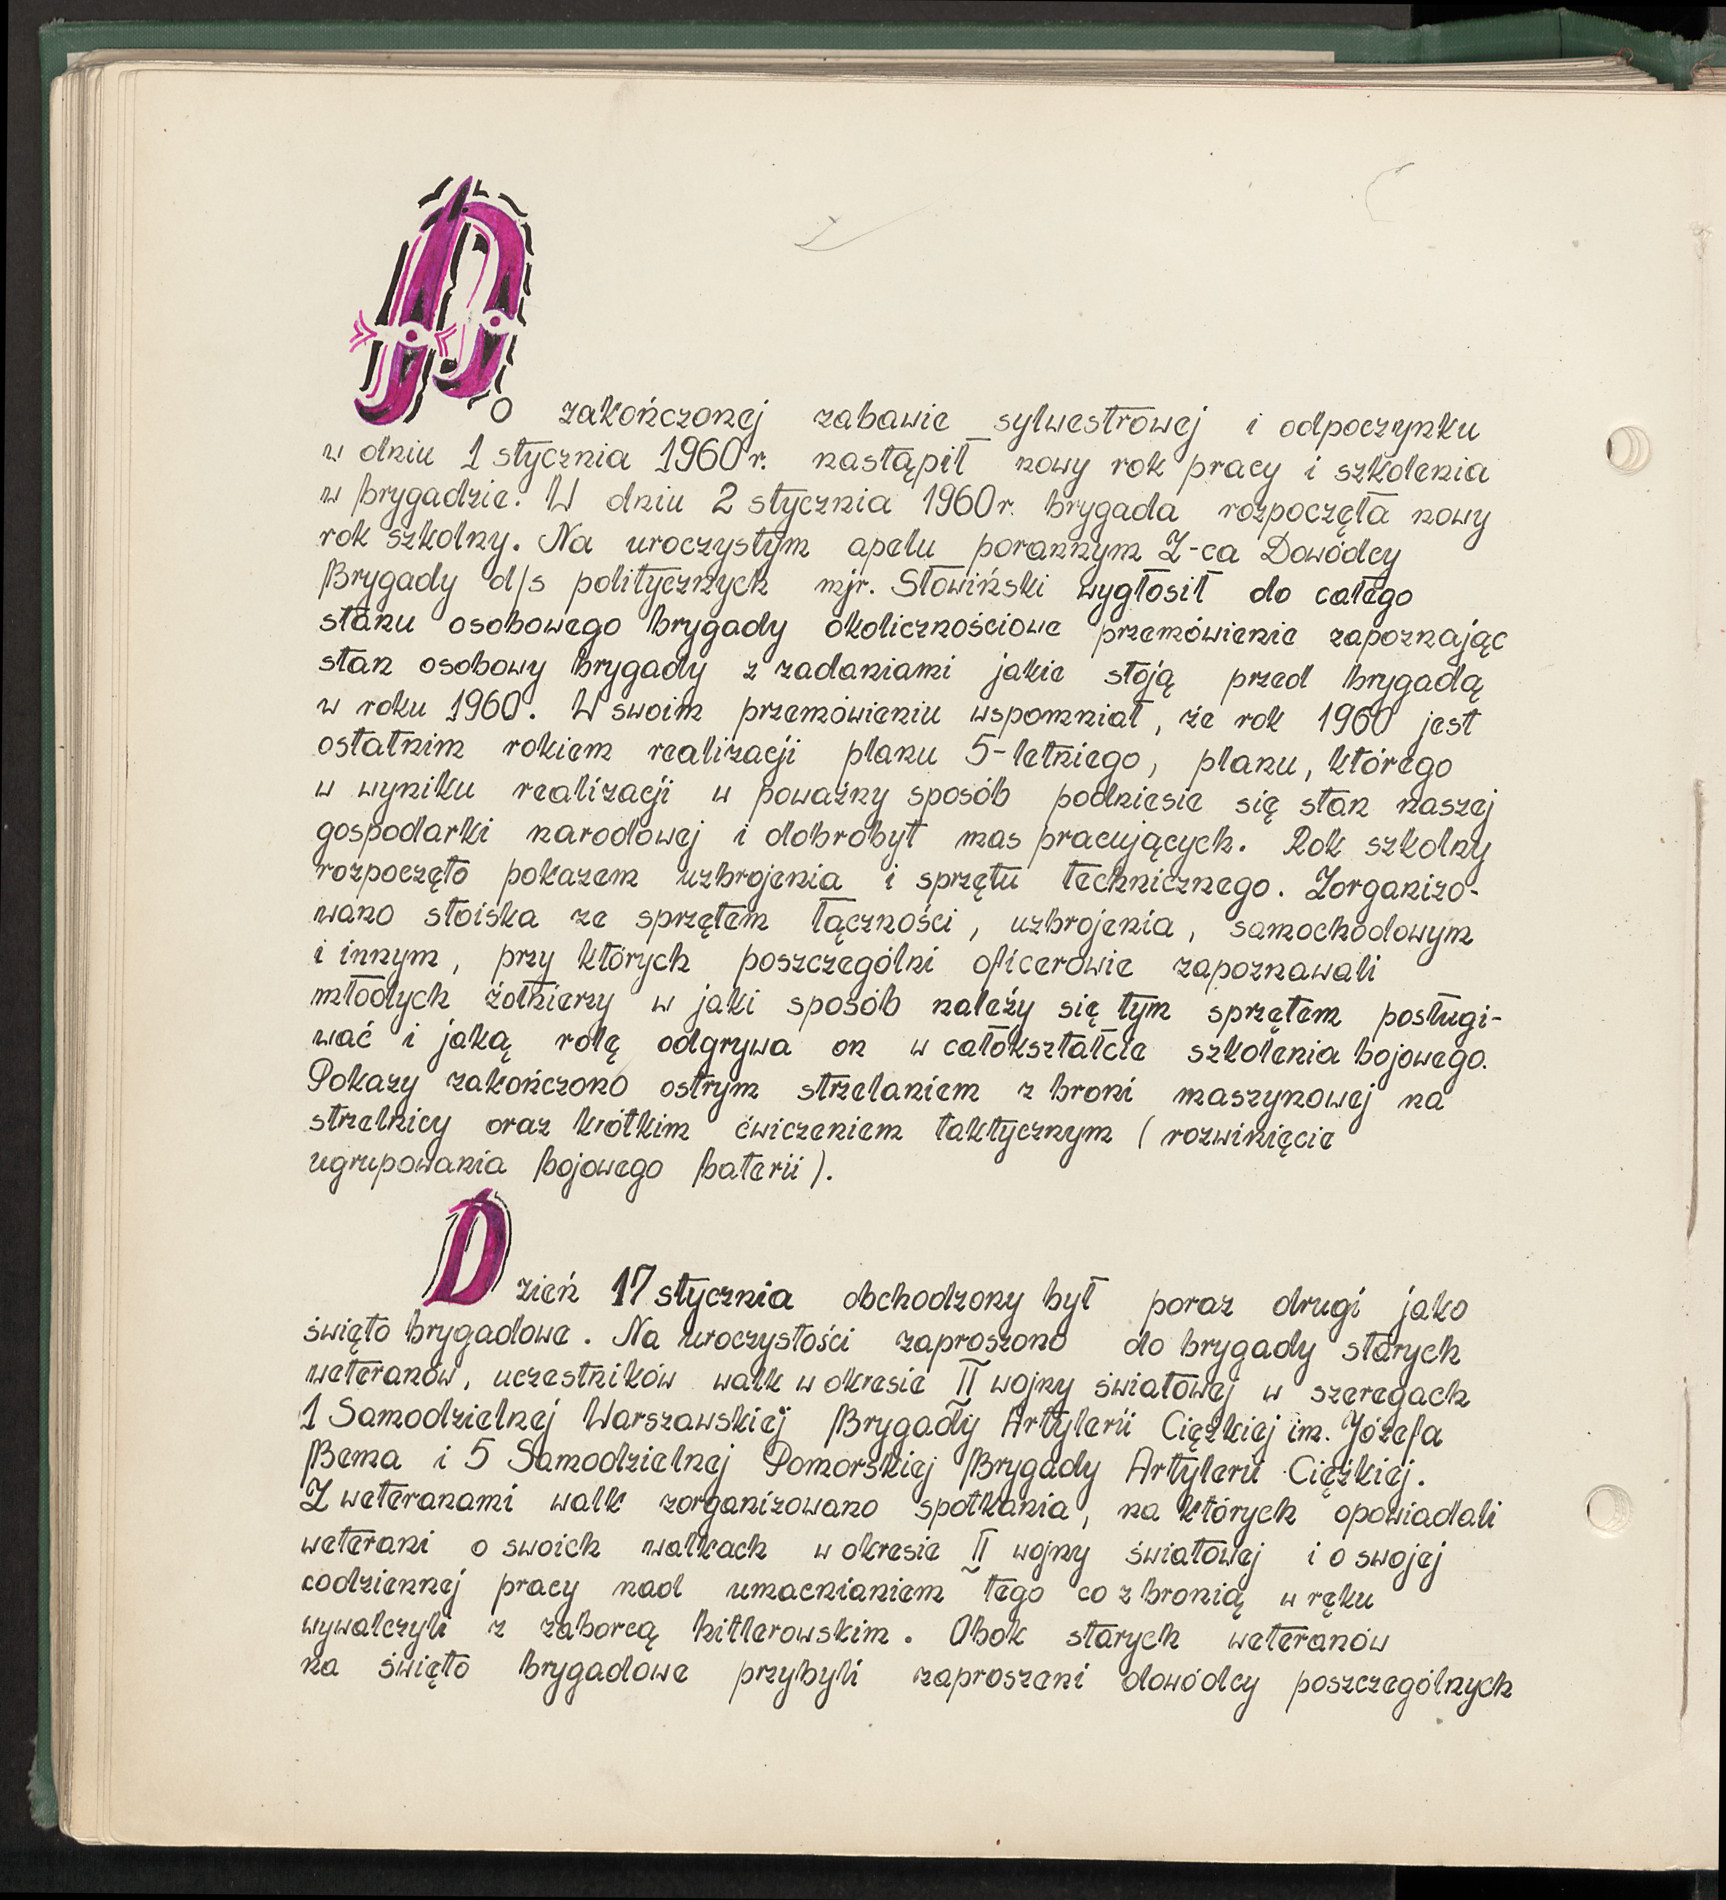 Po zakończonej zabawie sylwestrowej i odpoczynku
w dniu 1 stycznia 1960 r. nastąpił nowy rok pracy i szkolenia
w brygadzie. W dniu 2 stycznia 1960 r. brygada rozpoczęła nowy
rok szkolny. Na uroczystym apelu porannym Z-ca Dowódcy
Brygady d/s politycznych mjr. Słowiński wygłosił do całego
stanu osobowego brygady okolicznościowe przemówienie zapoznając
stan osobowy brygady z zadaniami jakie stoją przed brygadą
w roku 1960. W swoim przemówieniu wspomniał, że rok 1960 jest
ostatnim rokiem realizacji planu 5-letniego, planu, którego
w wyniku realizacji w poważny sposób podniesie się stan naszej
gospodarki narodowej i dobrobyt mas pracujących. Rok szkolny
rozpoczęto pokazem uzbrojenia i sprzętu technicznego. Zorganizo-
wano stoiska ze sprzętem łączności, uzbrojenia, samochodowym
i innym, przy których poszczególni oficerowie zapoznawali
młodych żołnierzy w jaki sposób należy się tym sprzętem posługi-
wać i jaką rolę odgrywa on w całokształcie szkolenia bojowego.
Pokazy zakończono ostrym strzelaniem z broni maszynowej na
strzelnicy oraz krótkim ćwiczeniem taktycznym (rozwinięcie
ugrupowania bojowego baterii).
Dzień 17 stycznia obchodzony był poraz drugi jako
święto brygadowe. Na uroczystości zaproszono do brygady starych
weteranów, uczestników walk w okresie II wojny światowej w szeregach
1 Samodzielnej Warszawskiej Brygady Artylerii Ciężkiej im. Józefa
Bema i 5 Samodzielnej Pomorskiej Brygady Artylerii Ciężkiej.
Z weteranami walk zorganizowano spotkania, na których opowiadali
weterani o swoich walkach w okresie II wojny światowej i o swojej
codziennej pracy nad umacnianiem tego co z bronią w ręku
wywalczyli z zaborcą hitlerowskim. Obok starych weteranów
na święto brygadowe przybyli zaproszeni dowódcy poszczególnych